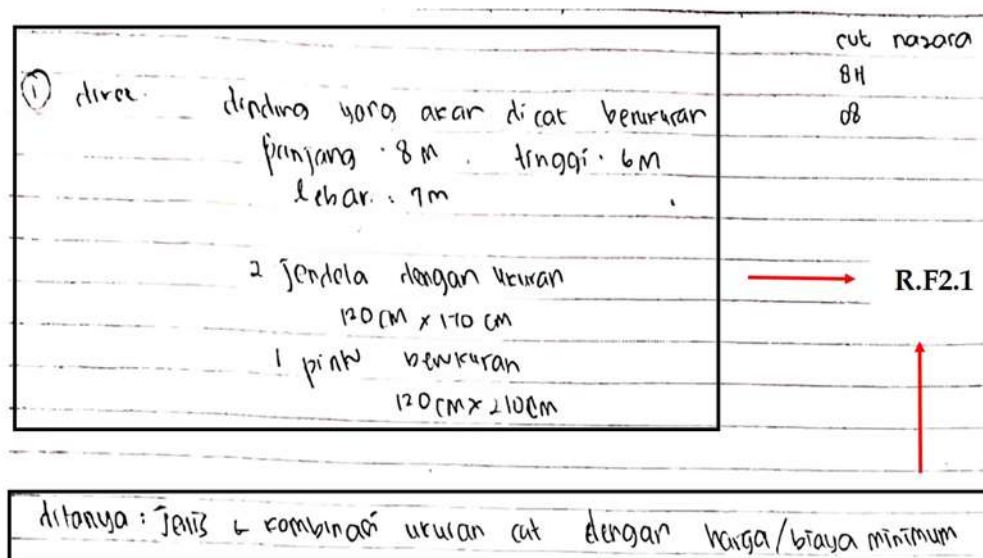 cut nazara
8H
08
① dike. dinding yang akan di cat berukuran
panjang : 8 M . tinggi : 6 M
lebar. : 7m
2 jendela dengan ukuran
120 CM x 170 CM
R.F2.1
1 pintu berukuran
120 CM x 210 CM
ditanya : jenis & kombinasi ukuran cat dengan harga/biaya minimum